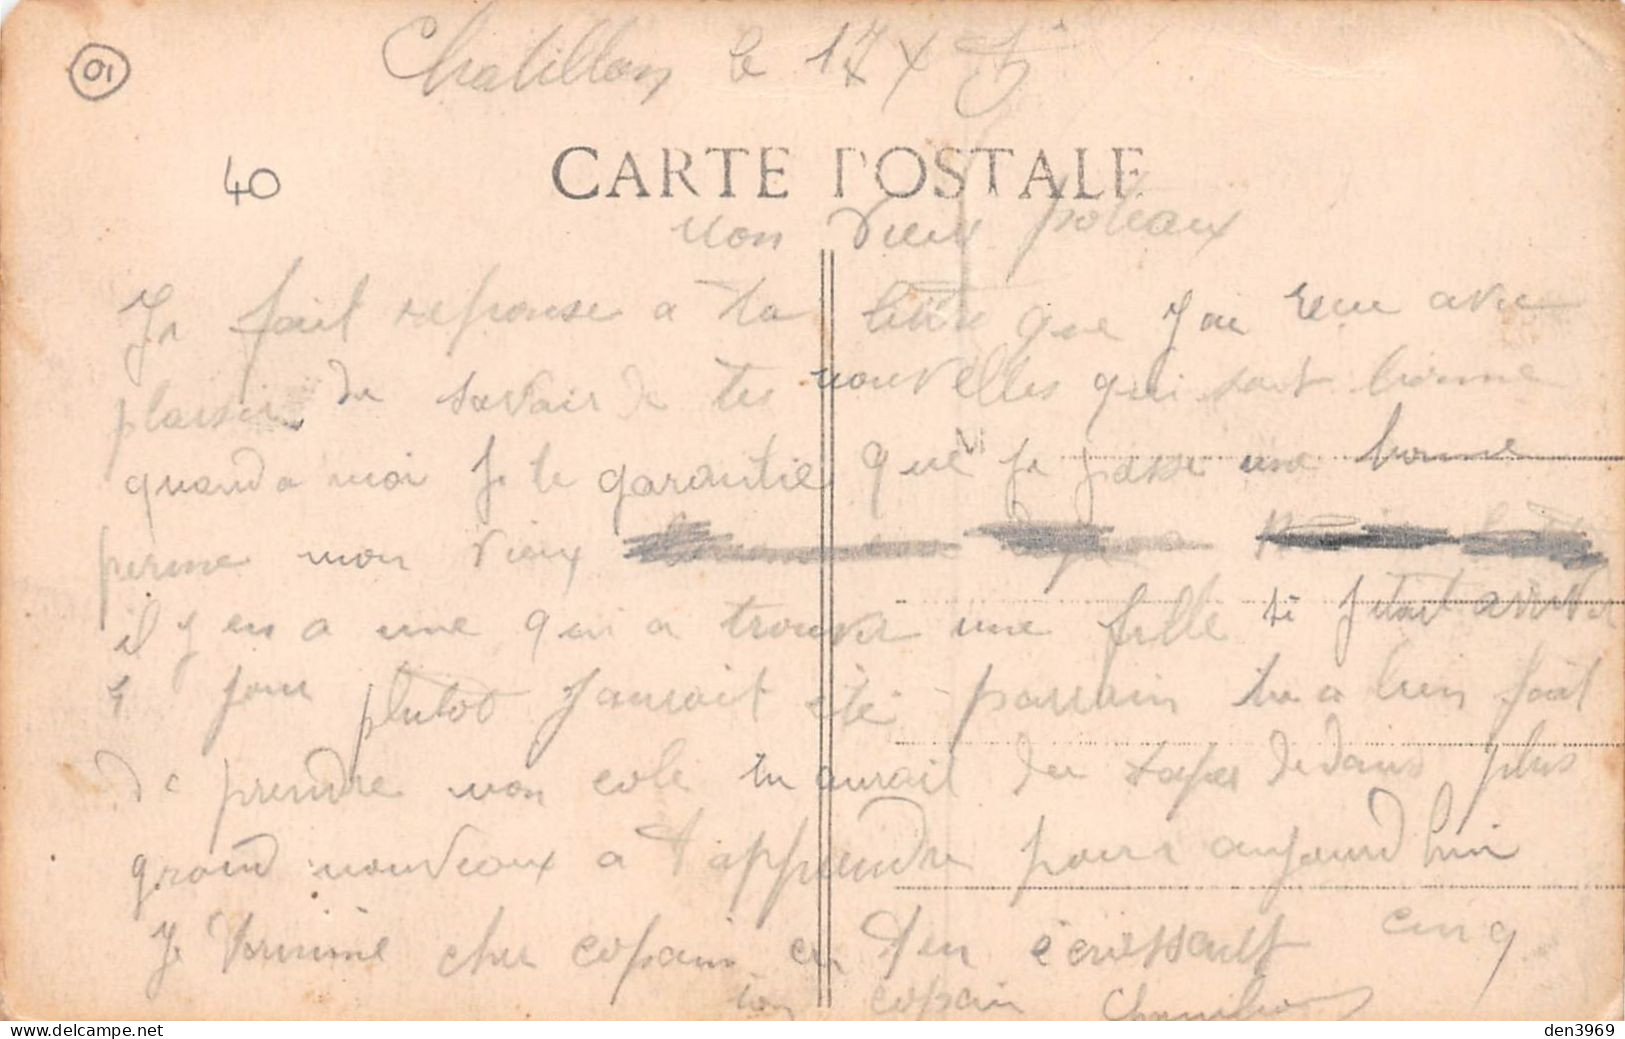 01
Chatillon le 17 X
40
CARTE POSTALE
mon vieux poteaux
Je fait reponse a ta lettre que j'ai reçu avec
plaisir de savoir de tes nouvelles qui sont bonne
quand a moi Je te garantie que je passe une bonne
perme mon vieux
il y en a une qui a trouver une fille si j'etait arriver
jour plutot J'aurait été parrain tu a bien fait
de prendre mon colt tu aurait du taper dedans plus
grand nouveaux a t'apprendre pour aujourd'hui
Je termine cher copain en t'en écrassant cinq
ton copain
den3969